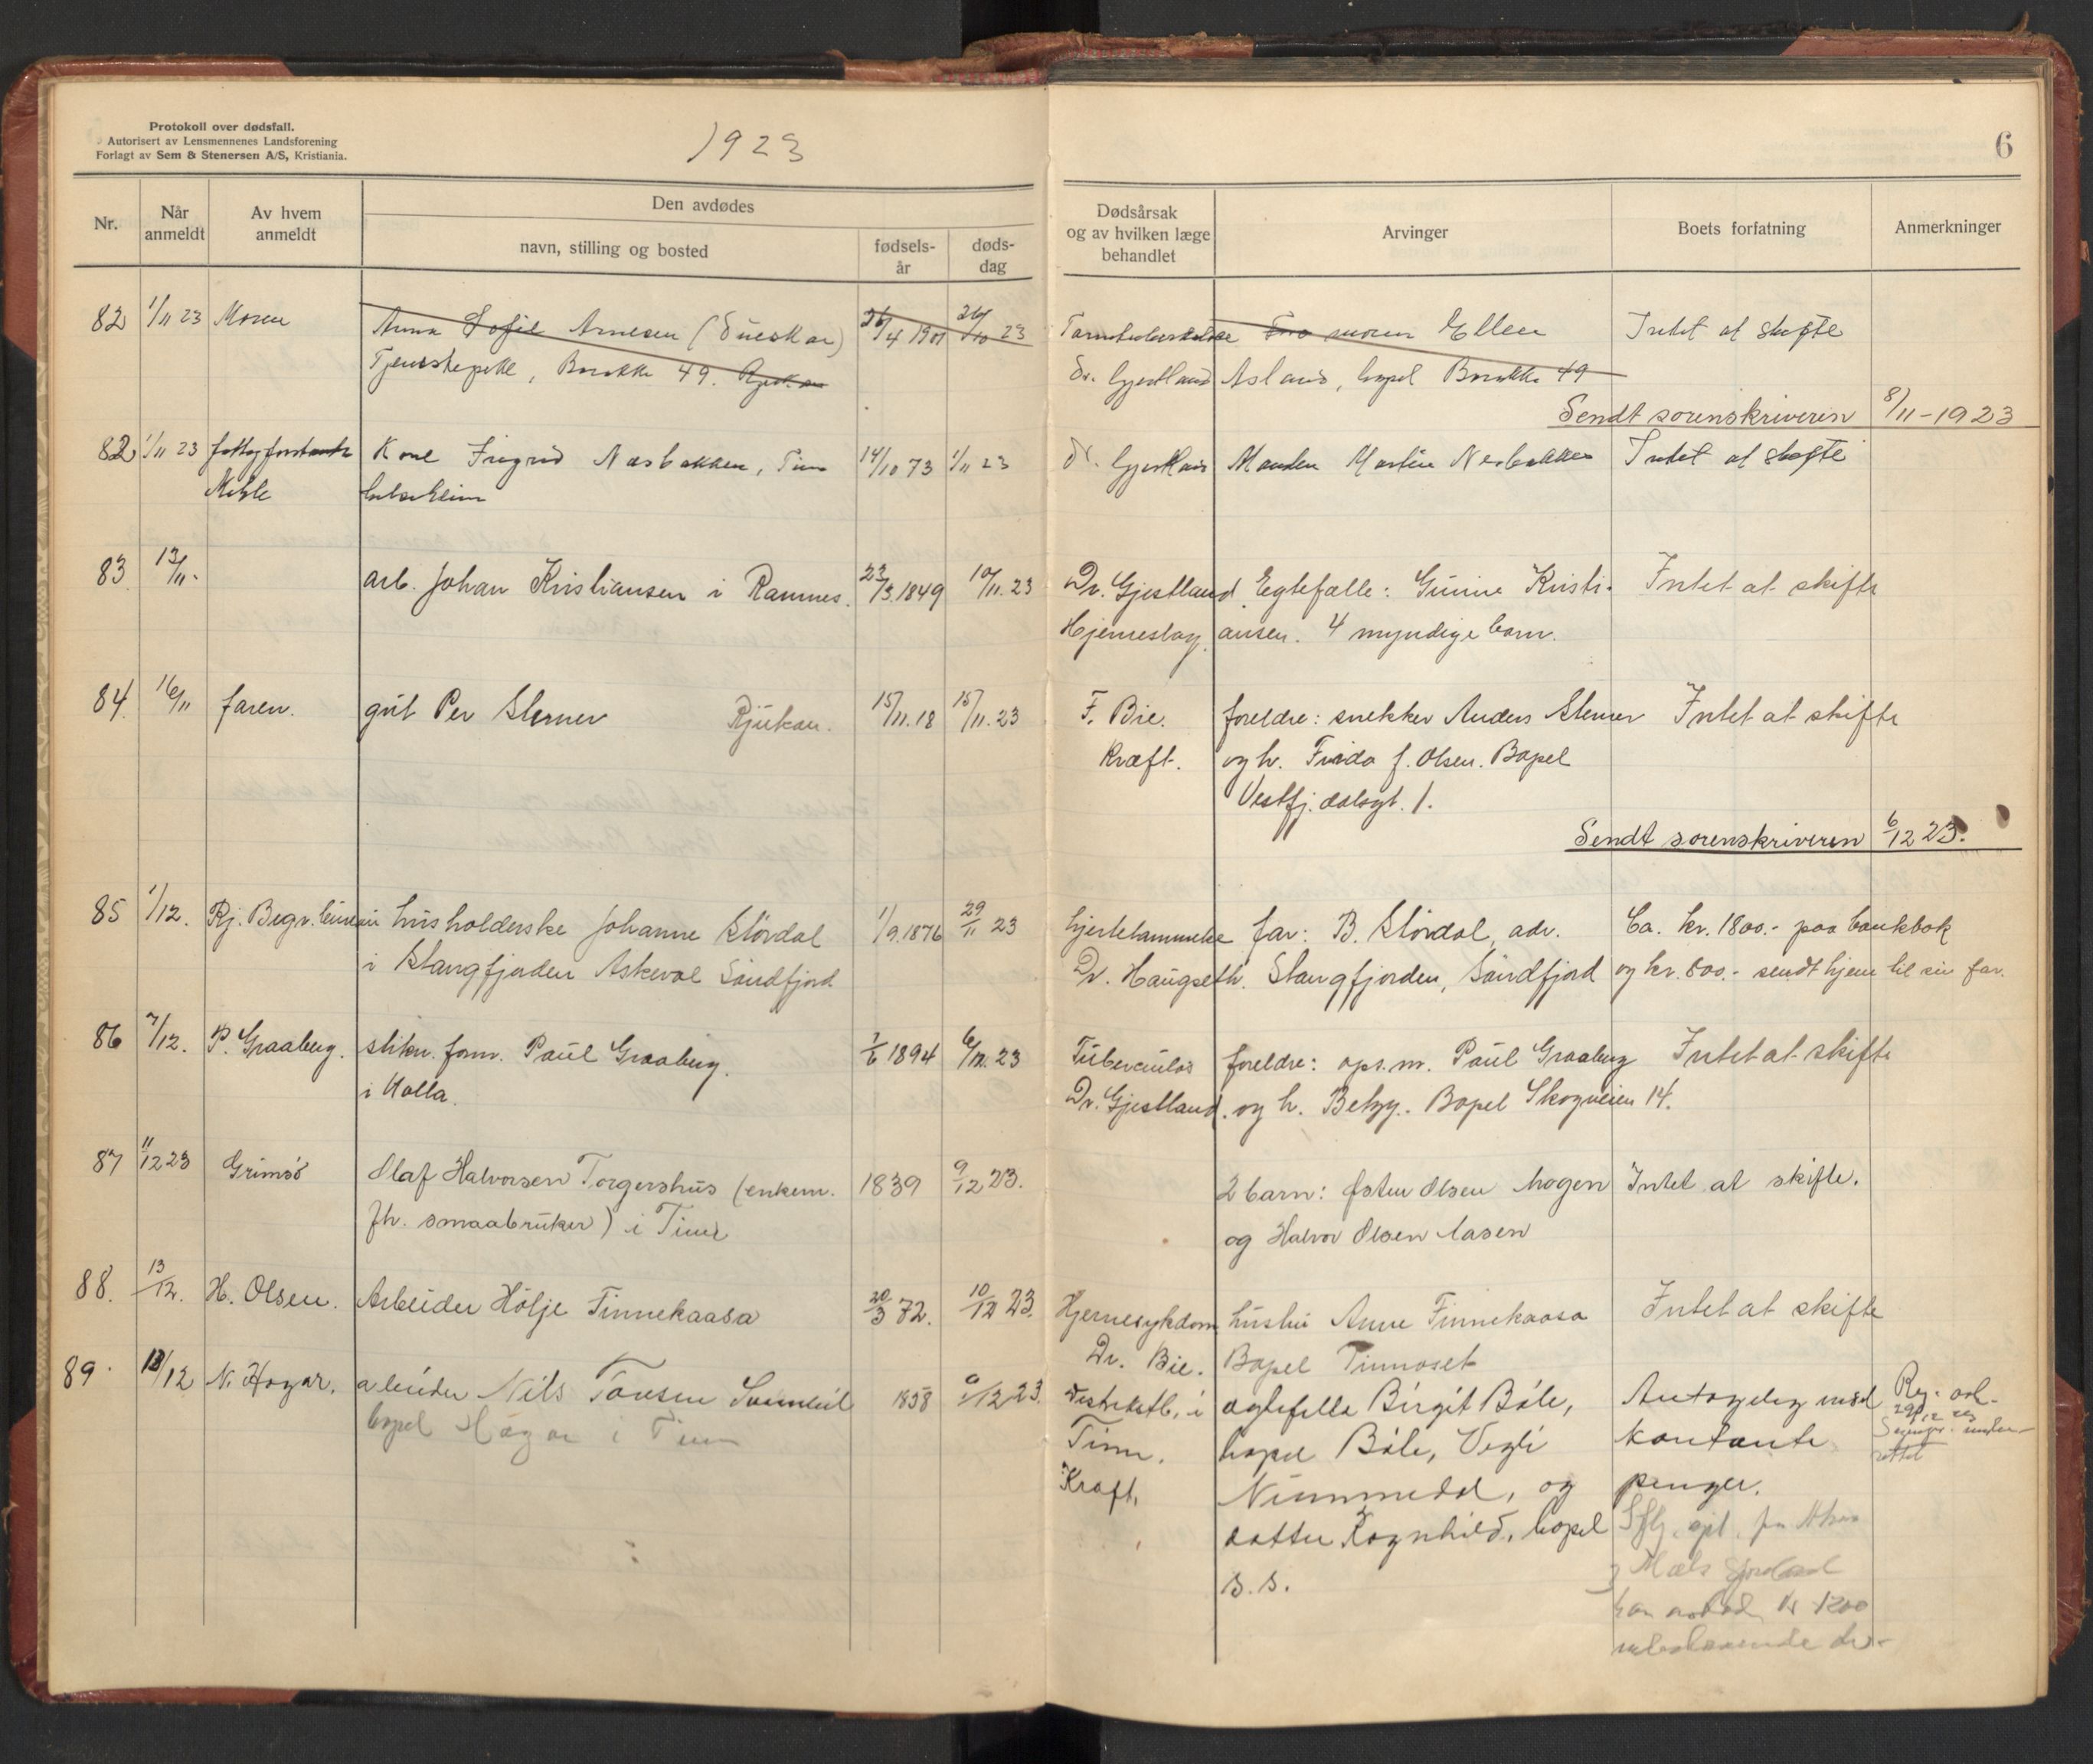 Protokoll over dødsfall.
Autorisert av Lensmennenes Landsforening
Forlagt av Sem & Stenersen A/S, Kristiania.
1923
6
Nr.
Når anmeldt
Av hvem anmeldt
Den avdødes
navn, stilling og bosted
fødsels-år
døds-dag
Dødsårsak og av hvilken læge behandlet
Arvinger
Boets forfatning
Anmerkninger
82 1/11 23 Moren Anna Sofie Arnesen 26/4 1901 26/10 23 moren Ellen Intet at skifte
Barakke 49. Rjukan Dr. Gjestland Asland, bopel Barakke 49
Sendt sorenskriveren 8/11-1923
82 1/11 23 Kone Ingrid Næsbakken, Tinn 14/10 73 1/11 23 Dr. Manden Martin Nesbakken Intet at skifte
83 13/11. arb. Johan Kristiansen i Ramnes. 23/3.1849 10/11.23 Dr. Gjestland Egtefælle: Gunne Kristi- Intet at skifte
Hjerneslag. ansen. 4 myndige barn.
84. 16/11 faren. gut Per Stener Rjukan. 15/11.18 15/11.23 F. Bie. foreldre: snekker Anders Stener Intet at skifte
Kræft. og h. Frida f. Olsen. Bopel
Vestfj.dalsgt. 1.
Sendt sorenskriveren 6/12 23.
85 1/12. Rj. Begr. bureau husholderske Johanne Stördal 1/9.1876 29/11 23 hjertelammelse far: B. Stördal, adr. Ca. kr. 1800.- paa bankbok
i Stangfjorden Askevol Söndfjord Dr. Haugseth. Stangfjorden, Söndfjord og kr. 800.- sendt hjem til sin far.
86 7/12. P. Graaberg. stikn. form. Paul Graaberg. 7/6 1894 6/12.23 Tuberculos foreldre: ops.m. Paul Graaberg Intet at skifte
i Holla. Dr. Gjestland. og h. Betzy. Bopel Skogveien 14.
87 11/12 23 Grimsö Olaf Halvorsen Torgershus (enkem. 1839 9/12 23. 2 barn: Østen Olsen Mogen Intet at skifte.
fh. smaabruker) i Tinn og Halvor Olsen Aasen
88. 13/12. H. Olsen. Arbeider Hölje Finnekaasa 20/3 72. 10/12 23. Hjernesykdom hustru Anne Finnekaasa Intet at skifte
Dr. Bie. Bopel Tinnoset
89. 13/12 N. Hagar. arbeider Nils Tovsen 1858 /12 23. Distriktsl. i egtefelle Birgit Båle, Antagelig med
bopel Hagar i Tinn Tinn. bopel Båle, Vegli kontante
Kræft. Nummedal, og penger.
datter Ragnhild, bopel
s. s.
kr 1200